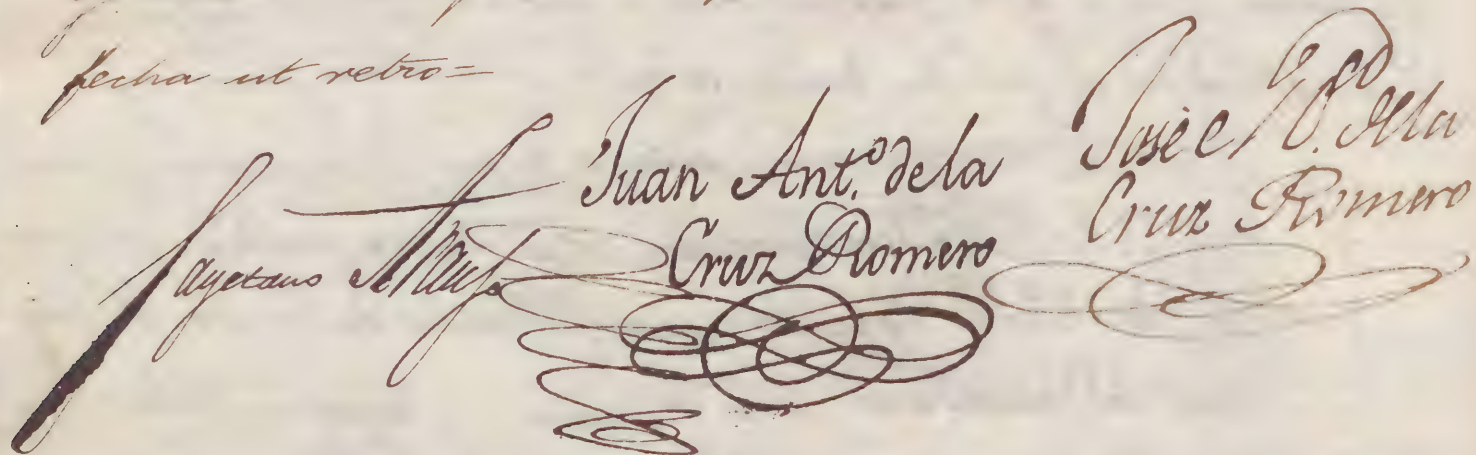 fecha ut retro=
Cayetano
Juan Ant.º de la
Cruz Romero
José
Cruz Romero